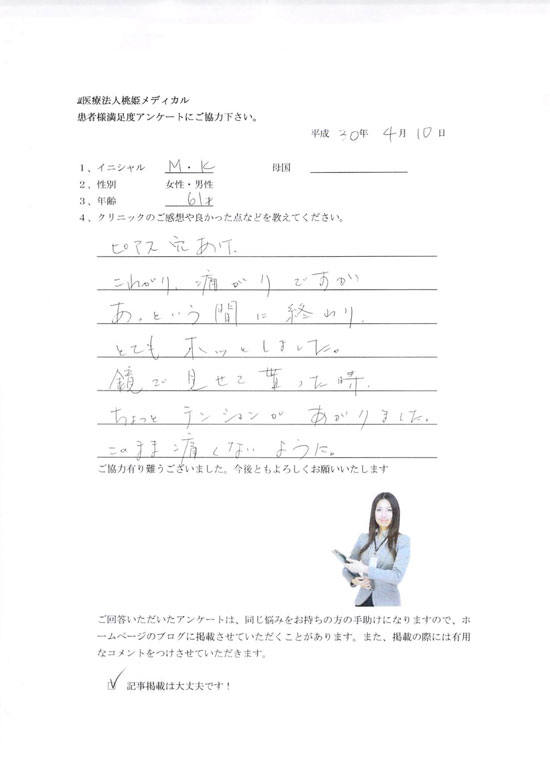 医療法人桃姫メディカル
患者様満足度アンケートにご協力下さい。
平成 30年 4月 10日
1、イニシャル M・K 母国
2、性別 女性・男性
3、年齢 61才
4、クリニックのご感想や良かった点などを教えてください。
ピアス穴あけ、
こわがり、痛がりですが
あっという間に終わり、
とてもホッとしました。
鏡で見せて貰った時、
ちょっとテンションがあがりました。
このまま痛くないように。
ご協力有り難うございました。今後ともよろしくお願いいたします
ご回答いただいたアンケートは、同じ悩みをお持ちの方の手助けになりますので、ホ
ームページのブログに掲載させていただくことがあります。また、掲載の際には有用
なコメントをつけさせていただきます。
記事掲載は大丈夫です！